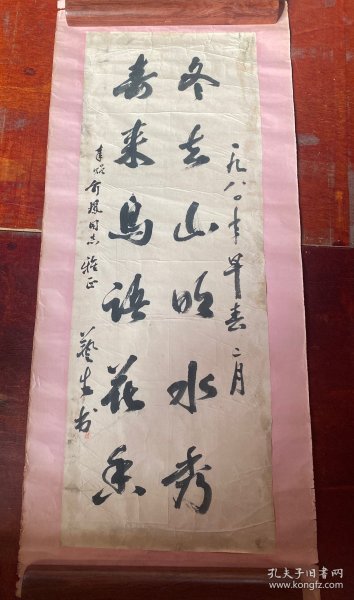 一九八〇年早春二月
冬去山明水秀
春来鸟语花香
同志雅正
艺生书
孔夫子旧书网